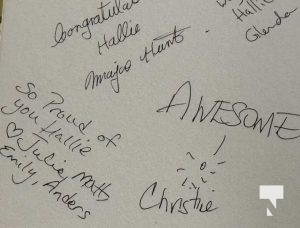 Congratulat
Hallie
Hallie
Glenda
So Proud of
you Hallie
♡ Julie, Matt,
Emily, Anders
AWESOME
!
Christie